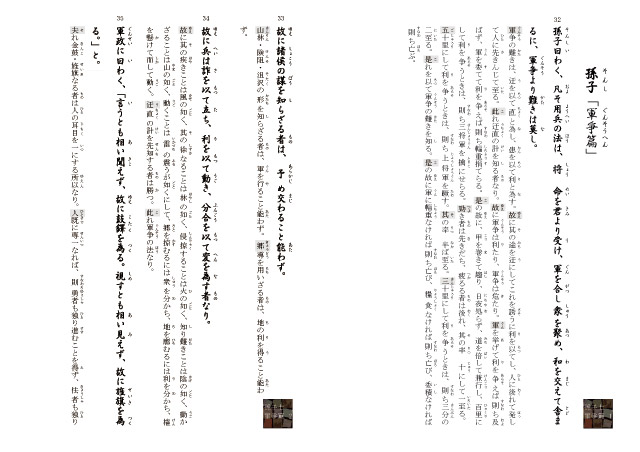 孫子「軍争篇」
32
孫子曰わく、凡そ用兵の法は、将 命を君より受け、軍を合し衆を聚め、和を交えて舎ま
るに、軍争より難きは莫し。
軍争の難きは、迂を以て直と為し、患を以て利と為す。故に其の途を迂にしてこれを誘うに利を以てし、人に後れて発し
て人に先きんじて至る。此れ迂直の計を知る者なり。故に軍争は利たり、軍争は危たり。軍を挙げて利を争えば則ち及
ばず、軍を委てて利を争えば則ち輜重捐てらる。是の故に、甲を巻きて趨り、日夜処らず、道を倍して兼行し、百里に
して利を争うときは、則ち三将軍を擒にせらる。勁き者は先きだち、疲るる者は後れ、其の率 十にして一至る。
五十里にして利を争うときは、則ち上将軍を蹶す。其の率 半ば至る。三十里にして利を争うときは、則ち三分の
二至る。是れを以て軍争の難きを知る。是の故に軍に輜重なければ則ち亡び、糧食なければ則ち亡び、委積なければ
則ち亡ぶ。
33
故に諸侯の謀を知らざる者は、予め交わること能わず。
山林・険阻・沮沢の形を知らざる者は、軍を行ること能わず。郷導を用いざる者は、地の利を得ること能わ
ず。
34
故に兵は詐を以て立ち、利を以て動き、分合を以て変を為す者なり。
故に其の疾きことは風の如く、其の徐なることは林の如く、侵掠することは火の如く、知り難きことは陰の如く、動か
ざることは山の如く、動くことは雷の震うが如くにして、郷を掠むるには衆を分かち、地を廓むるには利を分かち、権
を懸けて而して動く。迂直の計を先知する者は勝つ。此れ軍争の法なり。
35
軍政に曰わく、「言うとも相い聞えず、故に鼓鐸を為る。視すとも相い見えず、故に旌旗を為
る。」と。
夫れ金鼓・旌旗なる者は人の耳目を一にする所以なり。人既に専一なれば、則ち勇者も独り進むことを得ず、怯者も独り